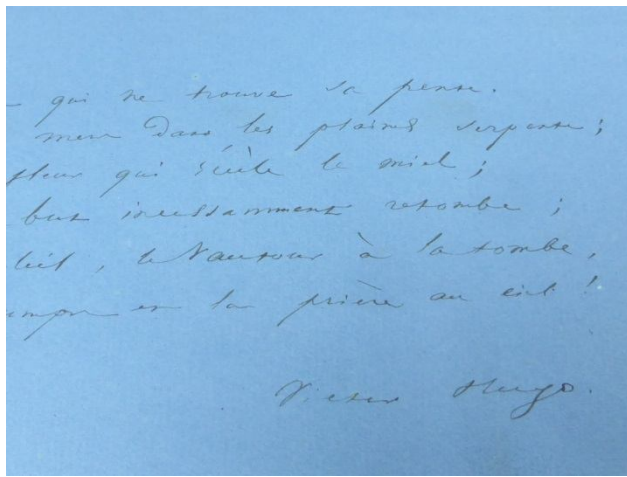 qui ne trouve sa pente.
mers dans les plaines serpente ;
fleur qui recèle le miel ;
but incessamment retombe ;
leil, le Vautour à la tombe,
et la prière au ciel !
Victor Hugo.